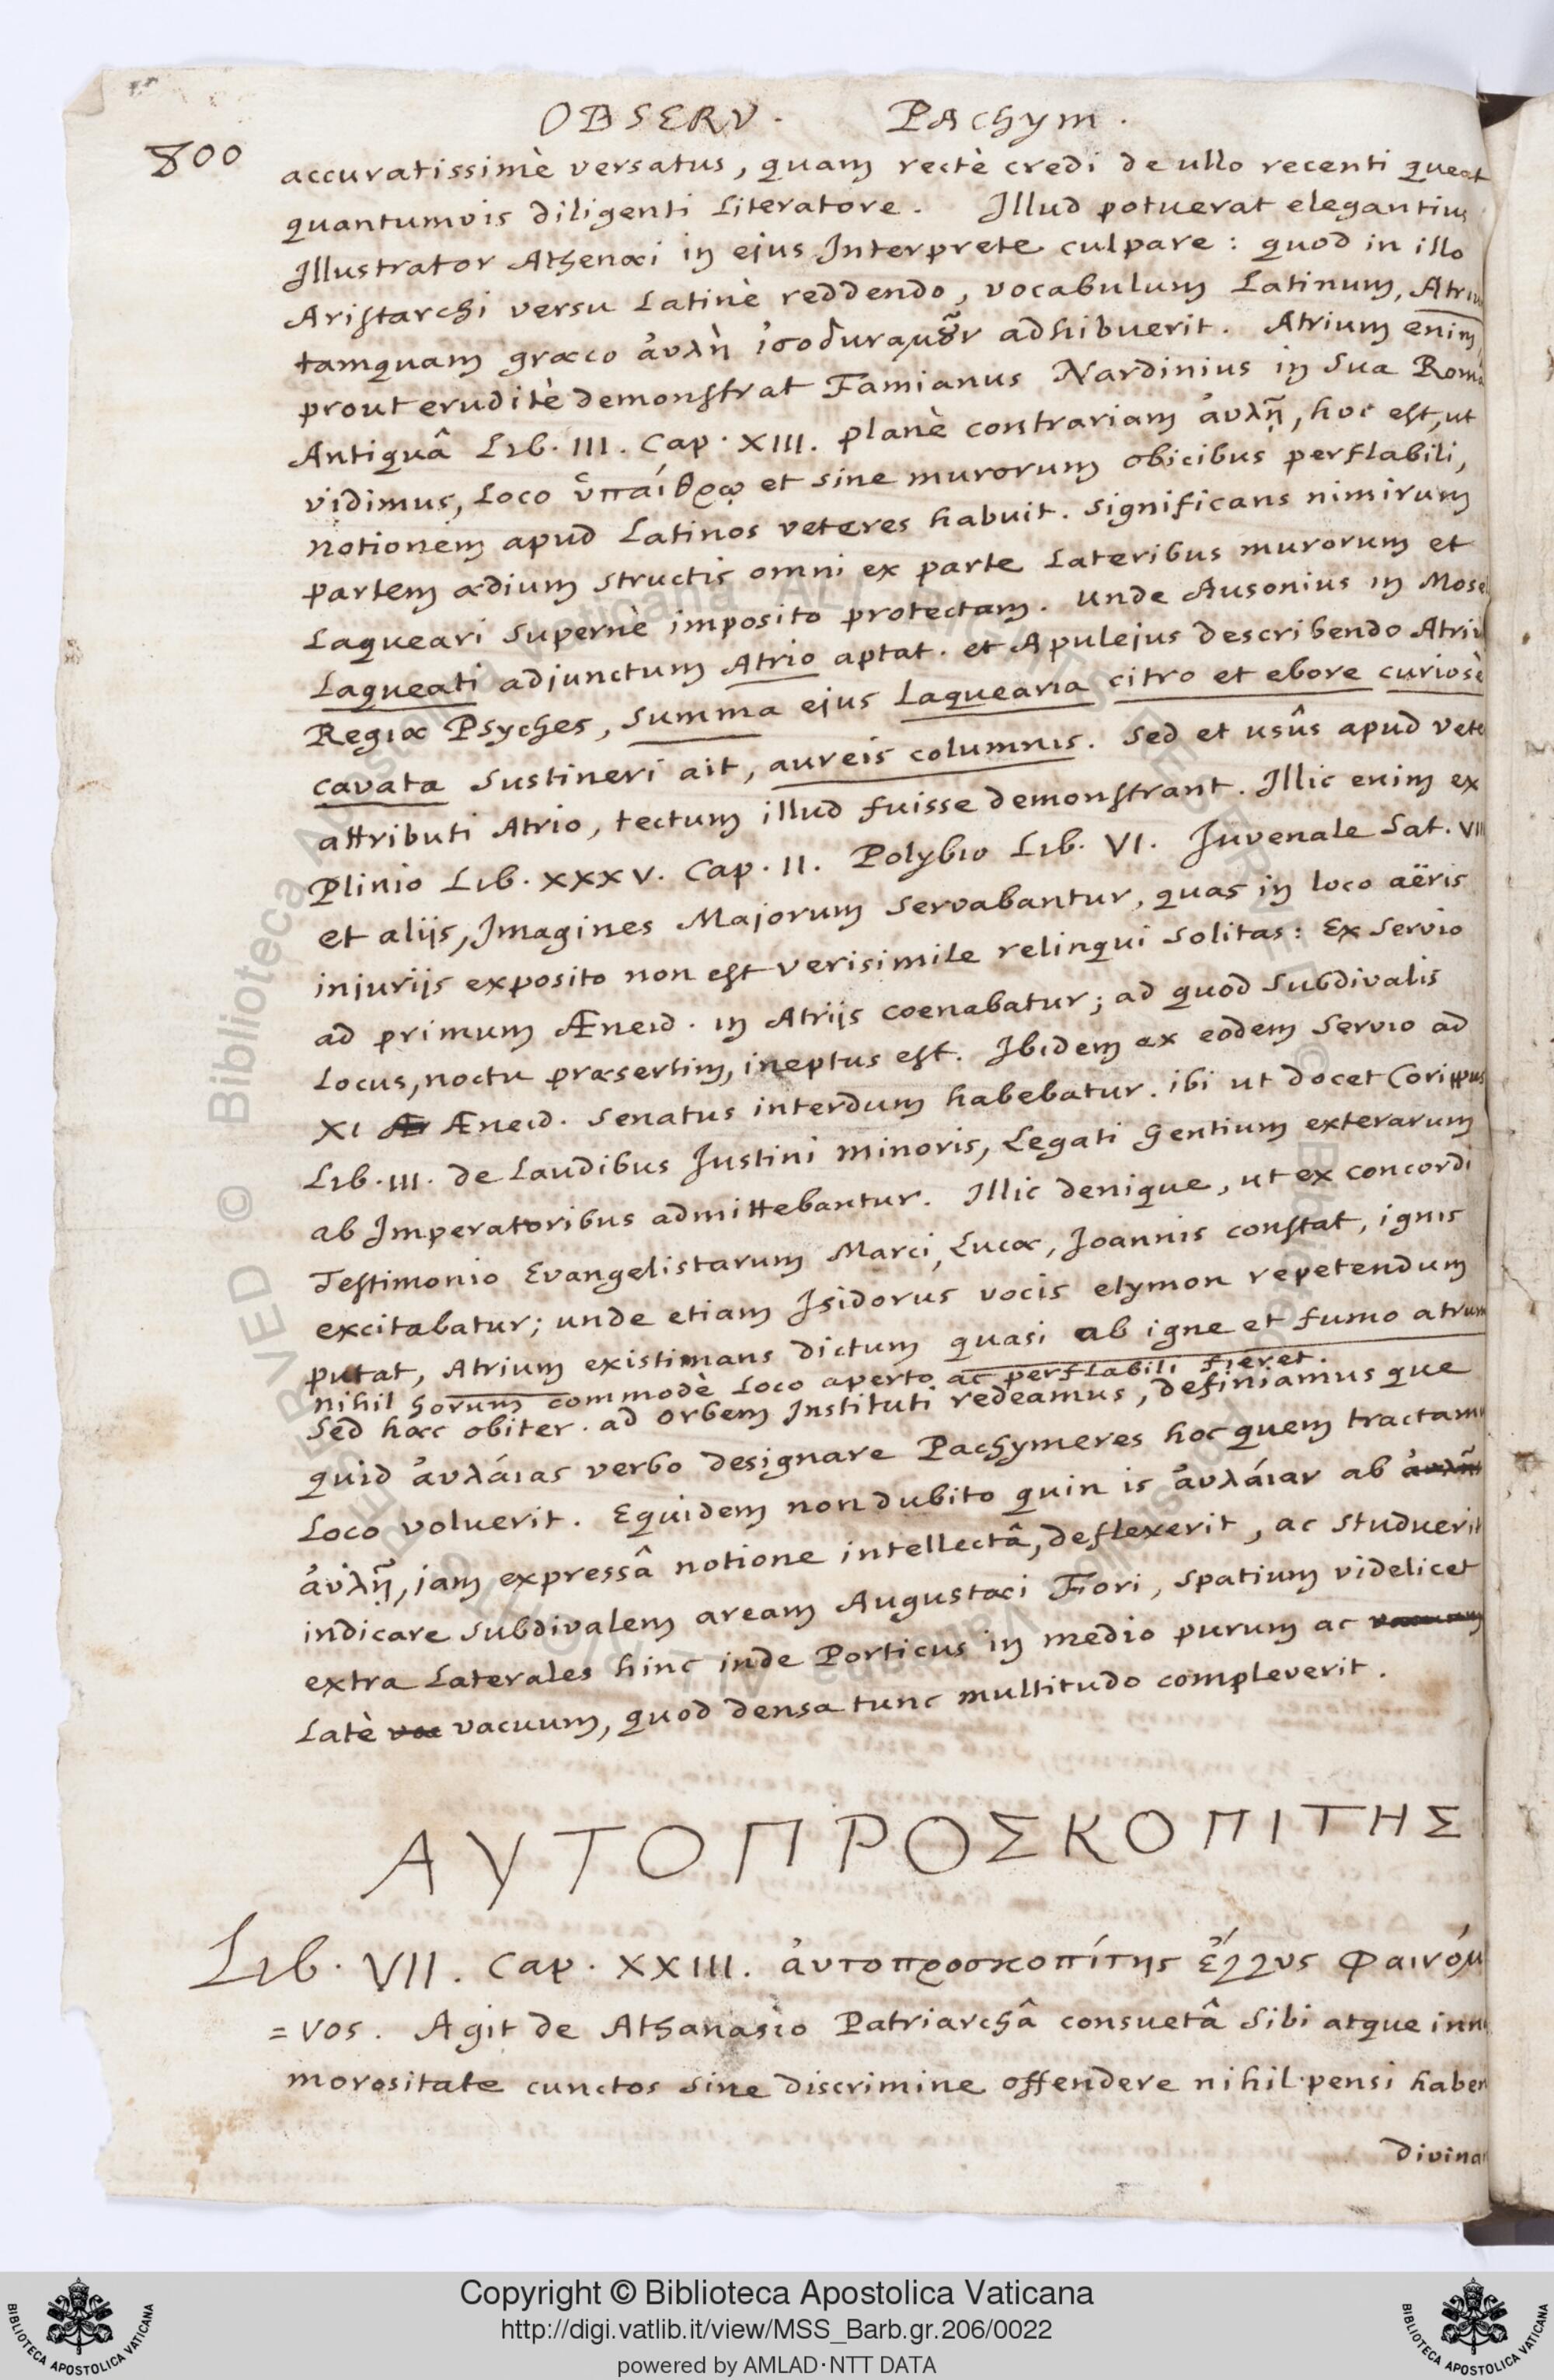 OBSERV. Pachym.
800
accuratissimè versatus, quam rectè credi de ullo recenti queat
quantumvis diligenti Literatore. Illud potuerat elegantius
Illustrator Athenæi in ejus Interprete culpare: quod in illo
Aristarchi versu Latinè reddendo, vocabulum Latinum, Atriu
tamquam græco ἀυλὴ ἰσοδυναμοῦν adhibuerit. Atrium enim,
prout eruditè demonstrat Famianus Nardinius in Sua Roma
Antiquâ Lib. III. Cap. XIII. planè contrariam ἀυλῇ, hoc est, ut
vidimus, Loco ὑπαίθρῳ et sine murorum obicibus perflabili,
notionem apud Latinos veteres habuit. significans nimirum
partem ædium structis omni ex parte Lateribus murorum et
Laqueari supernè imposito protectam. unde Ausonius in Mose
Laqueati adjunctum Atrio aptat. et Apulejus describendo Atriu
Regiæ Psyches, summa ejus Laquearia citro et ebore curiosè
cavata sustineri ait, aureis columnis. Sed et usûs apud vete
attributi Atrio, tectum illud fuisse demonstrant. Illic enim ex
Plinio Lib. XXXV. Cap. II. Polybio Lib. VI. Juvenale Sat. VIII
et aliis, Imagines Majorum servabantur, quas in loco aëris
injuriis exposito non est verisimile relinqui solitas: Ex Servio
ad primum Æneid. in Atriis coenabatur; ad quod subdivalis
Locus, noctu præsertim, ineptus est. Ibidem ex eodem Servio ad
XI Æneid. Senatus interdum habebatur. ibi ut docet Corippus
Lib. III. de Laudibus Justini minoris, Legati Gentium exterarum
ab Imperatoribus admittebantur. Illic denique, ut ex concordi
Testimonio Evangelistarum Marci, Lucæ, Joannis constat, ignis
excitabatur; unde etiam Isidorus vocis etymon repetendum
putat, Atrium existimans dictum quasi ab igne et fumo atrum
nihil horum commodè Loco aperto ac perflabili fieret.
Sed hæc obiter. ad orbem Instituti redeamus, definiamus que
quid ἀυλάιας verbo designare Pachymeres hoc quem tractamu
Loco voluerit. Equidem non dubito quin is ἀυλάιαν ab ἀυλῆς
ἀυλῇ, iam expressâ notione intellectâ, deflexerit, ac studuerit
indicare subdivalem aream Augustæi Fori, spatium videlicet
extra Laterales hinc inde Porticus in medio purum ac vacuum
Latè vac vacuum, quod densa tunc multitudo compleverit.
ΑΥΤΟΠΡΟΣΚΟΠΙΤΗΣ
Lib. VII. Cap. XXIII. ἀυτοπροσκοπίτης ἔγγυς φαινόμ
=νος. Agit de Athanasio Patriarchâ consuetâ sibi atque inn
morositate cunctos sine discrimine offendere nihil pensi haben
divinar
Copyright © Biblioteca Apostolica Vaticana
http://digi.vatlib.it/view/MSS_Barb.gr.206/0022
powered by AMLAD·NTT DATA
BIBLIOTECA APOSTOLICA VATICANA
BIBLIOTECA APOSTOLICA VATICANA